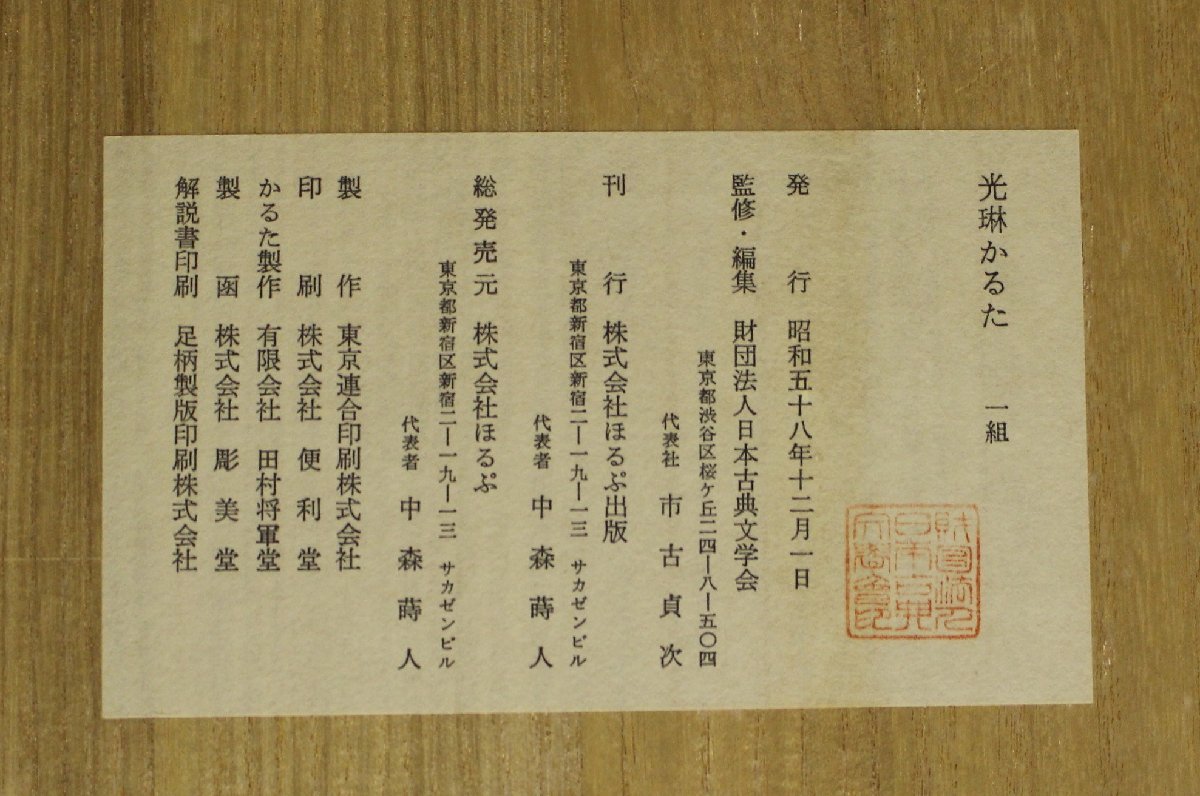 光琳かるた　一組
発行　昭和五十八年十二月一日
監修・編集　財団法人日本古典文学会
東京都渋谷区桜ケ丘二四―八―五〇四
代表社　市古貞次
刊行　株式会社ほるぷ出版
東京都新宿区新宿二―一九―一三　サカゼンビル
代表者　中森蒔人
総発売元　株式会社ほるぷ
東京都新宿区新宿二―一九―一三　サカゼンビル
代表者　中森蒔人
製作　東京連合印刷株式会社
印刷　株式会社便利堂
かるた製作　有限会社田村将軍堂
製函　株式会社彫美堂
解説書印刷　足柄製版印刷株式会社